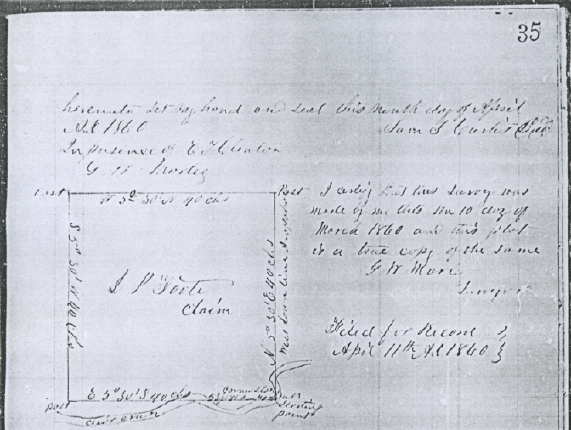 35
hereunto set my hand and seal this ninth day of April
Ad 1860 Sam S Curtis
In presence of E F Clinton
G W
Post W 3° 30' N 40 chs Post
S 3° 30' W 40 chs
N 3° 30' E 40 chs
J P Foote
Claim
E 3° 30' S 40 chs
post
starting
point
I certify that this survey was
made by me this the 10 day of
March 1860 and this plat
is a true copy of the same
G W
Surveyor
Filed for Record
April 11th Ad 1860